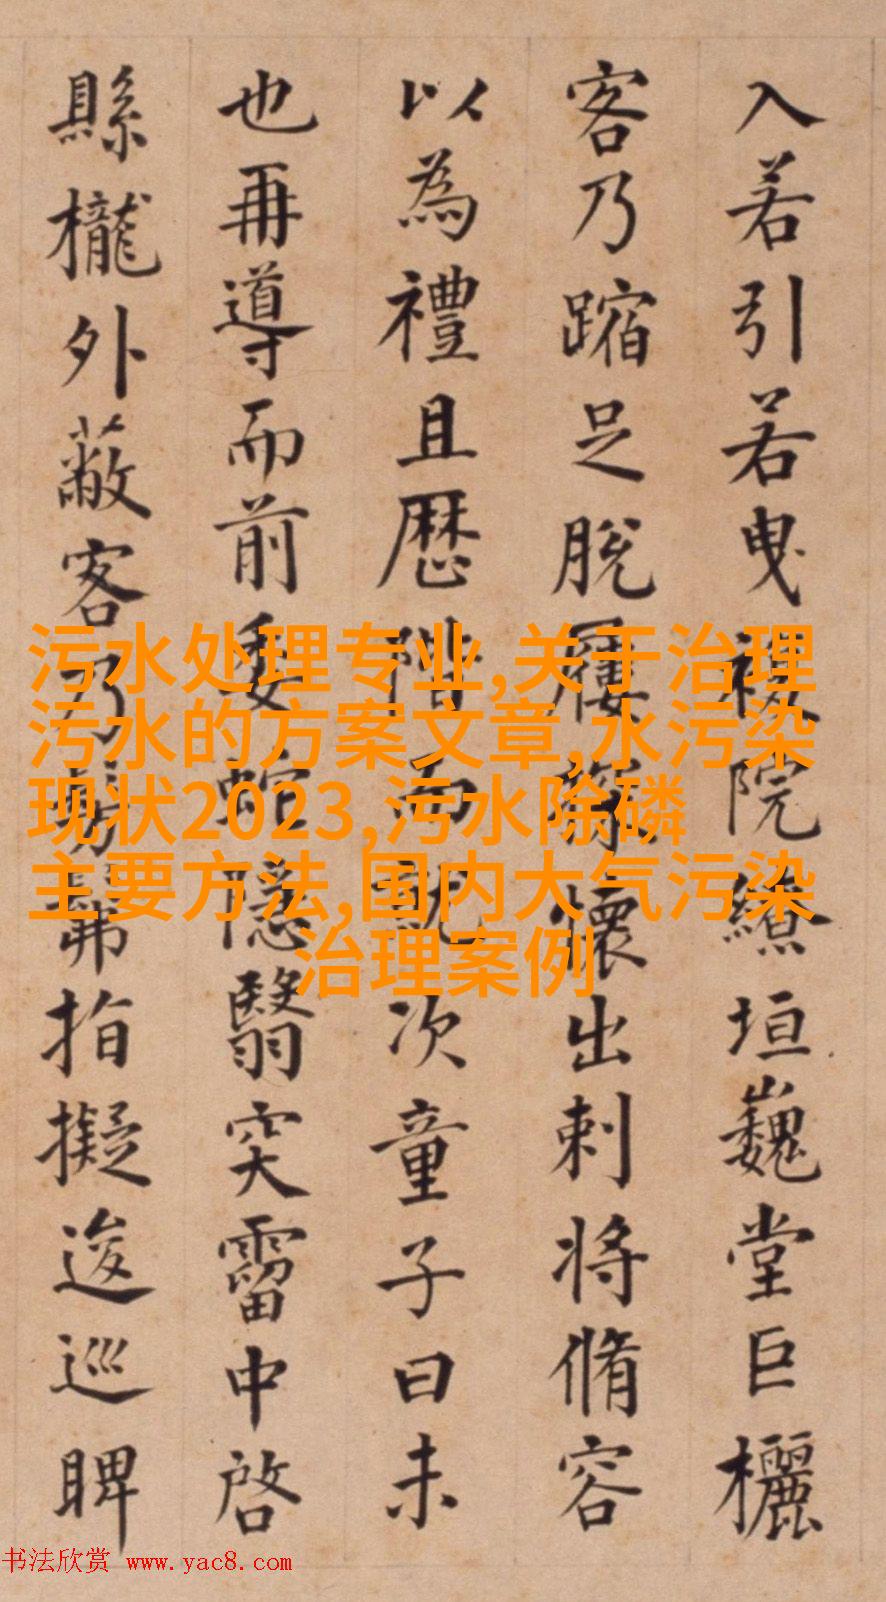 入若引若曳複院繚垣巍堂巨欐
客乃蹜足脫屨懷出刺將脩容
以為禮且歷階而就次童子曰未
也再導而前委蛇隱翳突霤中啓
縣櫳外蔽客乃髣髴指擬逡巡睥
污水处理专业,关于治理
污水的方案文章,水污染
现状2023,污水除磷
主要方法,国内大气污染
治理案例
书法欣赏 www.yac8.com